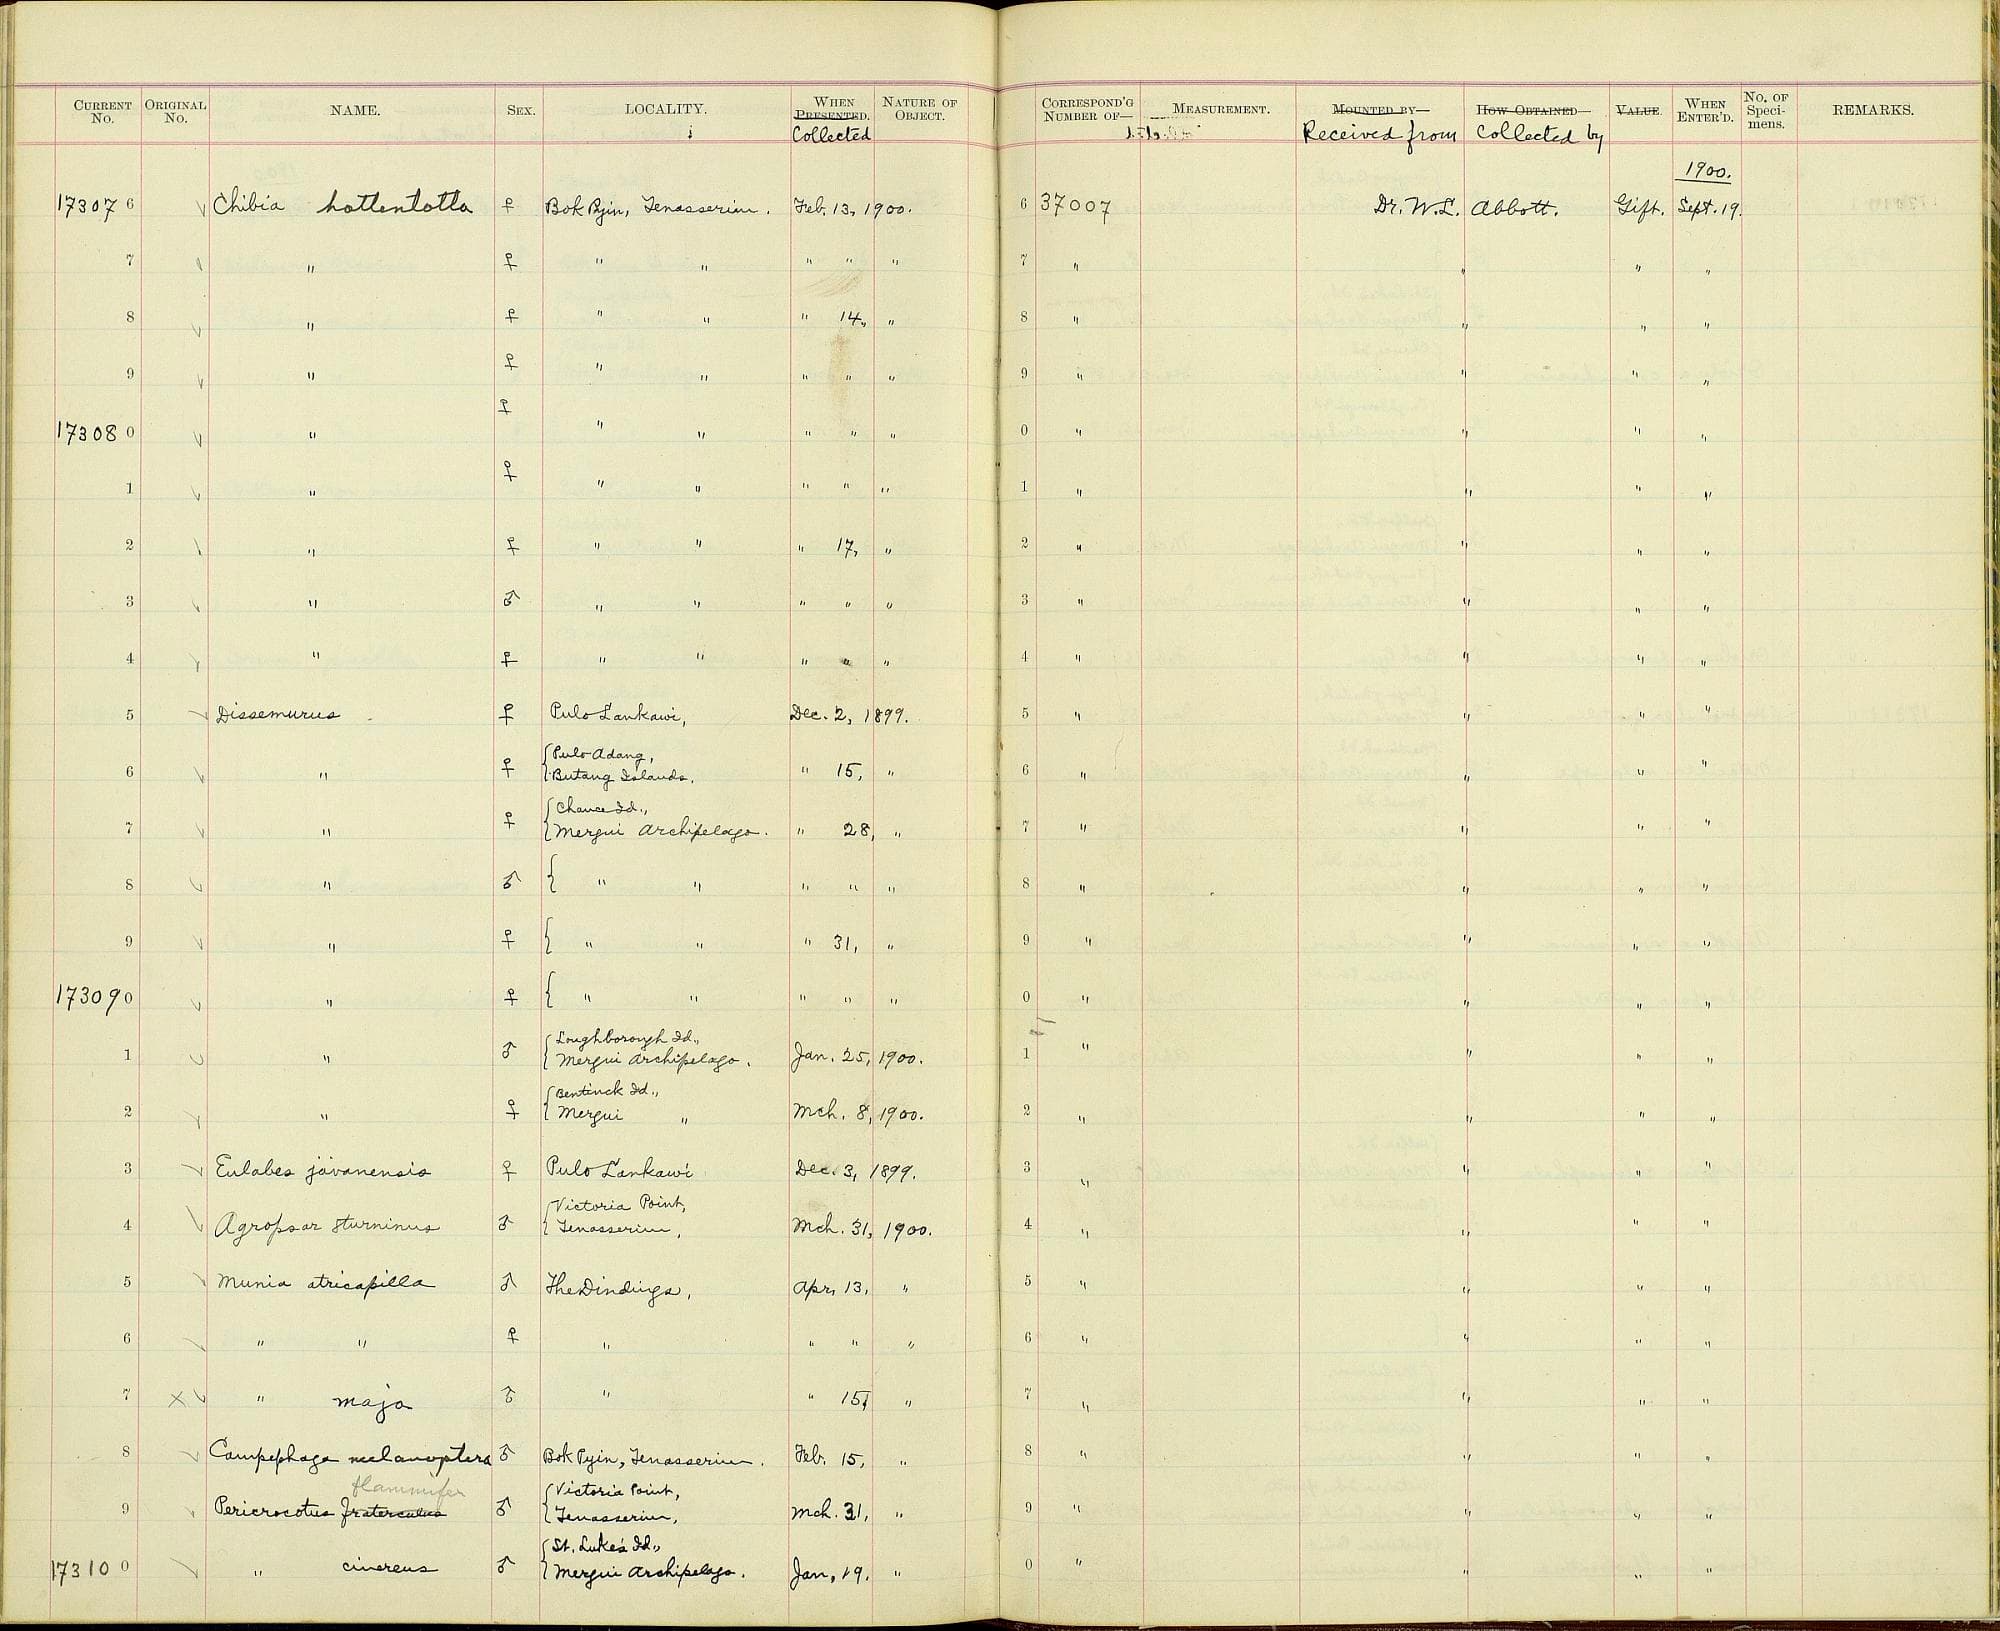 CURRENT No. ORIGINAL No. NAME. SEX. LOCALITY. WHEN PRESENTED. Collected NATURE OF OBJECT. CORRESPOND'G NUMBER OF— MEASUREMENT. MOUNTED BY— Received from HOW OBTAINED— Collected by VALUE. WHEN ENTER'D. No. OF Speci-mens. REMARKS.
1900.
17307 6 Chibia hottentotta ♀ Bok Pyin, Tenasserim. Feb. 13, 1900. 6 37007 Dr. W.L. Abbott. Gift. Sept. 19.
7 " ♀ " " " " " 7 " " " "
8 " ♀ " " " 14, " 8 " " " "
9 " ♀ " " " " " 9 " " " "
17308 0 " ♀ " " " " " 0 " " " "
1 " ♀ " " " " " 1 " " " "
2 " ♀ " " " 17, " 2 " " " "
3 " ♂ " " " " " 3 " " " "
4 " ♀ " " " " " 4 " " " "
5 Dissemurus ♀ Pulo Lankawi, Dec. 2, 1899. 5 " " " "
6 " ♀ { Pulo Adang, Butang Islands. " 15, " 6 " " " "
7 " ♀ { Chance Id., Mergui Archipelago. " 28, " 7 " " " "
8 " ♂ { " " " " " 8 " " " "
9 " ♀ { " " " 31, " 9 " " " "
17309 0 " ♀ { " " " " " 0 " " " "
1 " ♂ { Loughborough Id., Mergui Archipelago. Jan. 25, 1900. 1 " " " "
2 " ♀ { Bentinck Id., Mergui " Mch. 8, 1900. 2 " " " "
3 Eulabes javanensis ♀ Pulo Lankawi Dec. 3, 1899. 3 " " " "
4 Agropsar sturninus ♂ { Victoria Point, Tenasserim, Mch. 31, 1900. 4 " " " "
5 Munia atricapilla ♂ The Dindings, Apr. 13, " 5 " " " "
6 " " ♀ " " " " 6 " " " "
7 × " maja ♂ " " 15, " 7 " " " "
8 Campephaga melanoptera ♂ Bok Pyin, Tenasserim. Feb. 15, " 8 " " " "
flammifer
9 Pericrocotus fraterculus ♂ { Victoria Point, Tenasserim, Mch. 31, " 9 " " " "
17310 0 " cinereus ♂ { St. Luke's Id., Mergui Archipelago. Jan. 19. " 0 " " " "